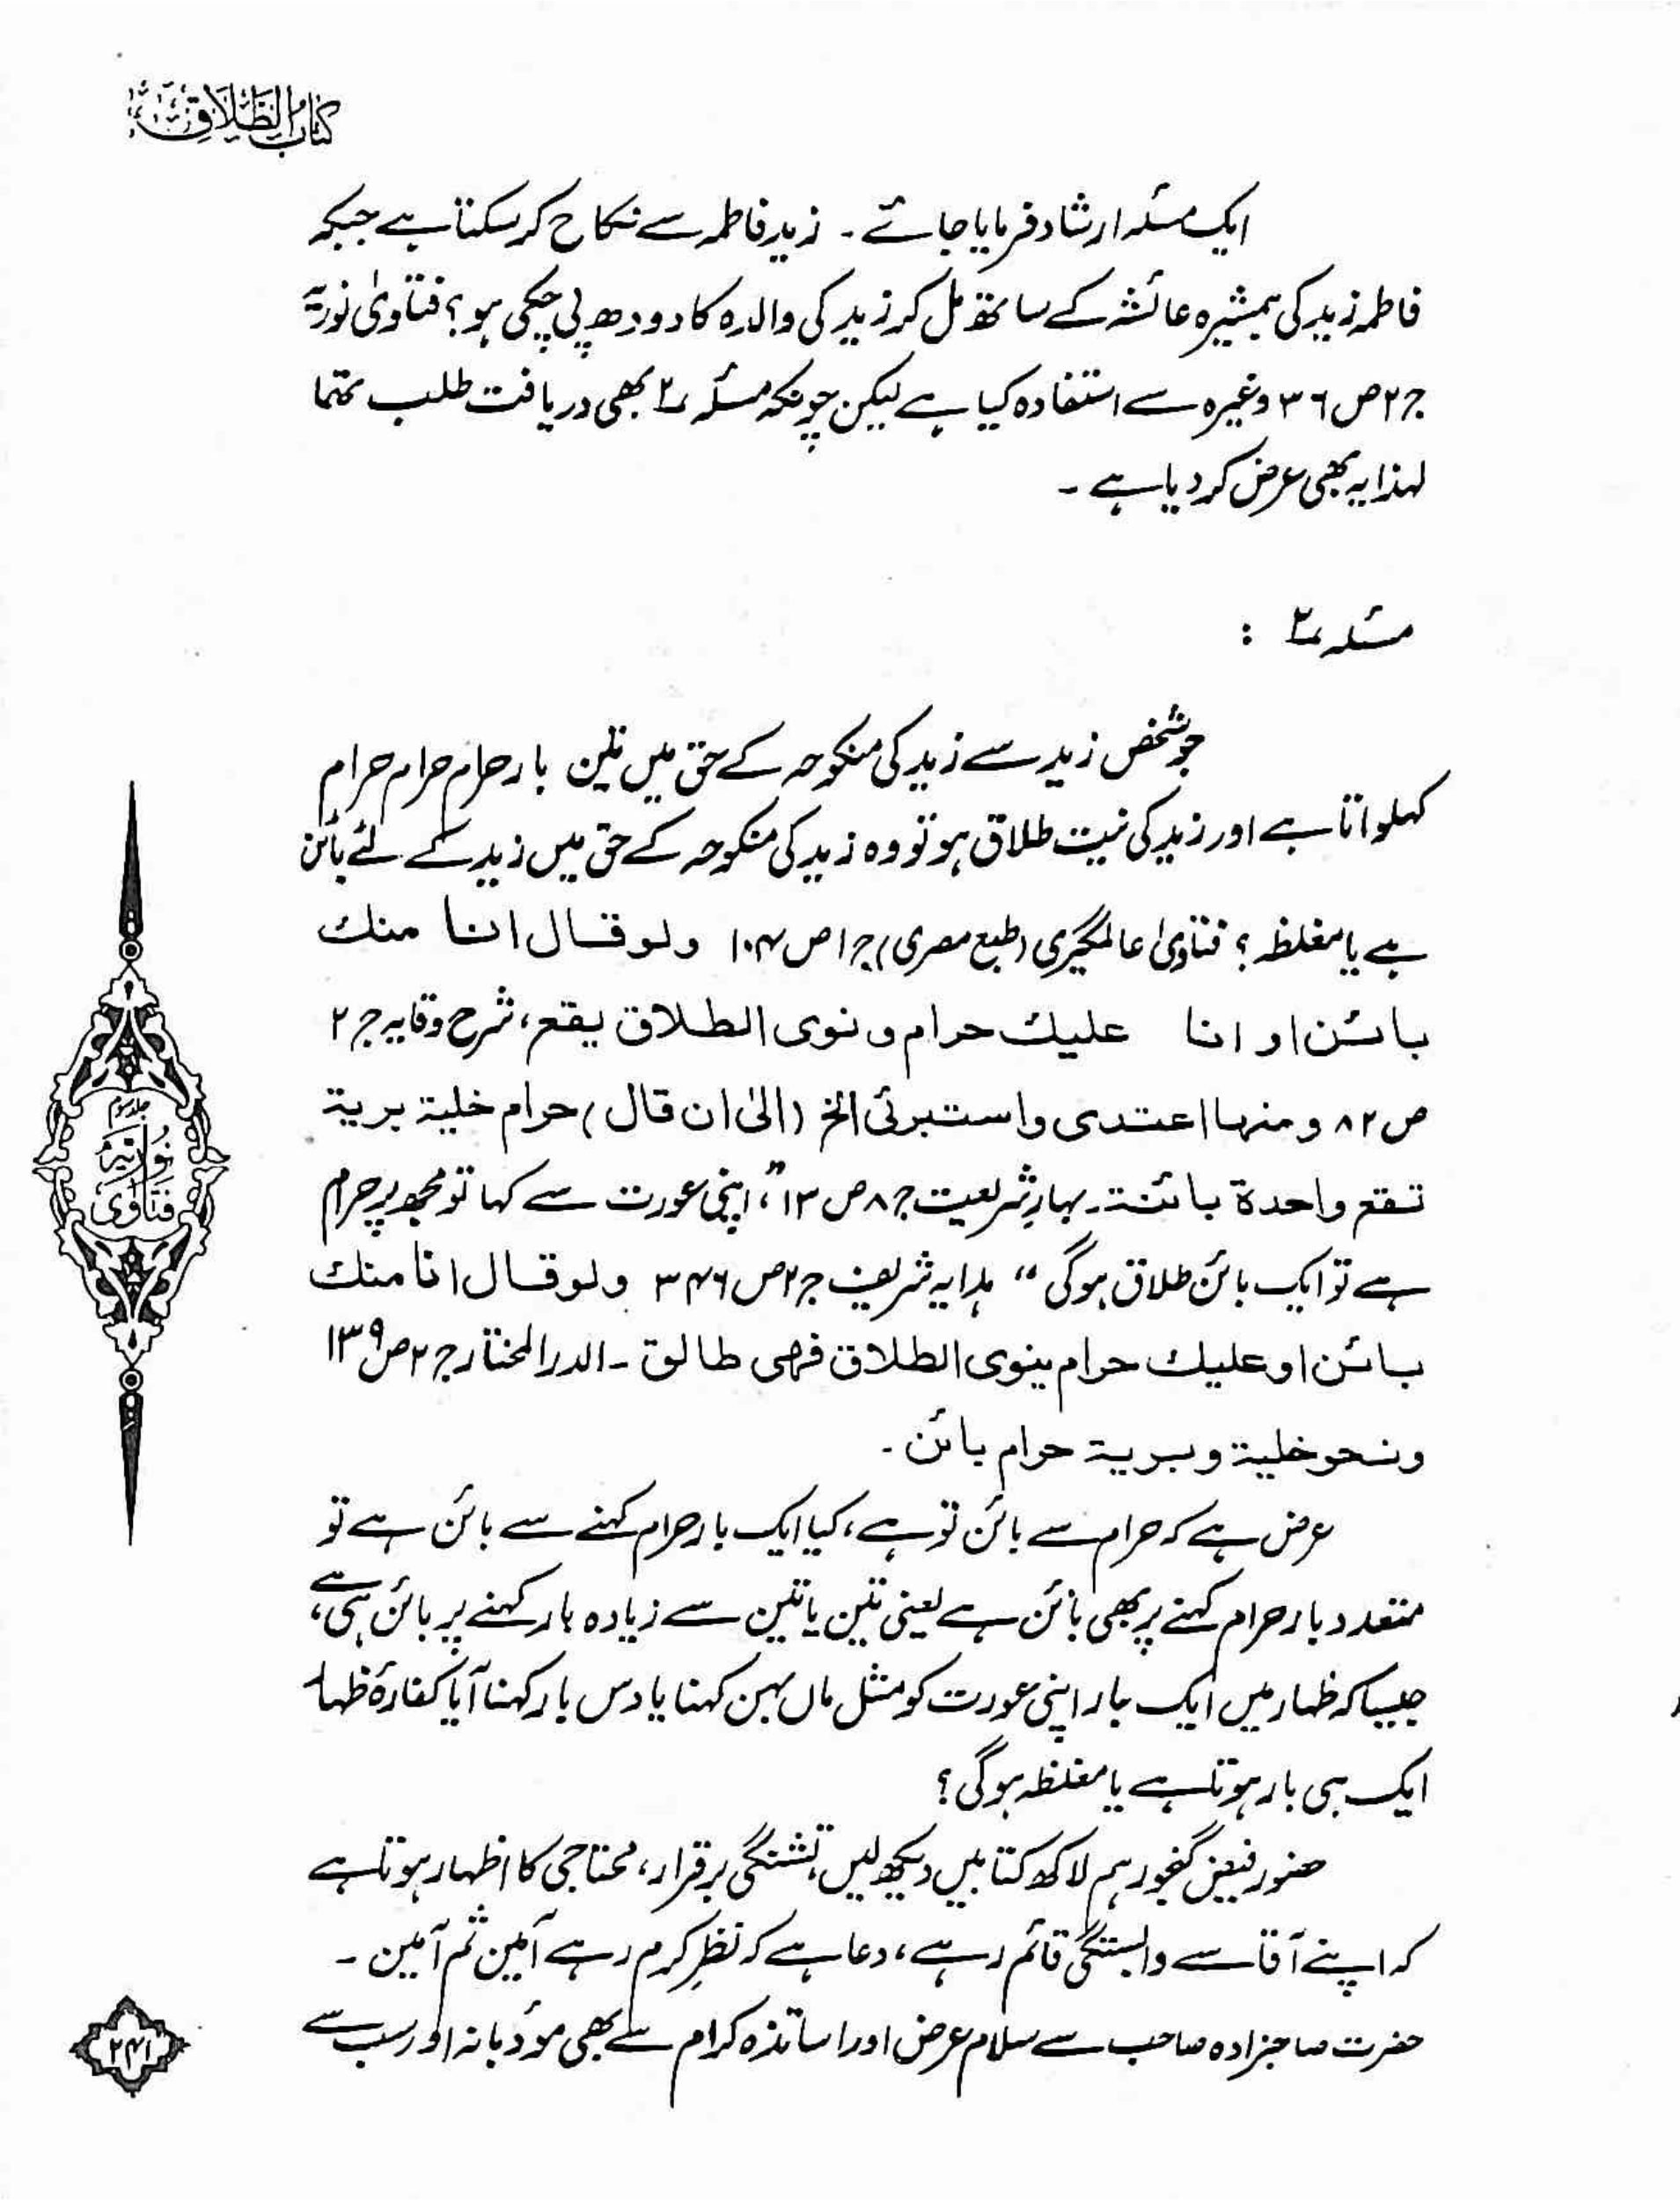 کتاب الطلاق
ایک مسئلہ ارشاد فرمایا جائے ۔ زید فاطمہ سے نکاح کر سکتا ہے جبکہ
فاطمہ زید کی ہمشیرہ عائشہ کے ساتھ مل کر زید کی والدہ کا دودھ پی چکی ہو؟ فتاویٰ نوریہ
ج۲ ص ۳۶ وغیرہ سے استفادہ کیا ہے لیکن چونکہ مسئلہ ۲ بھی دریافت طلب تھا
لہذا یہ بھی عرض کر دیا ہے ۔
مسئلہ ۲ :
جو شخص زید سے زید کی منکوحہ کے حق میں تین بار حرام حرام حرام
کہلواتا ہے اور زید کی نیت طلاق ہو تو وہ زید کی منکوحہ کے حق میں زید کے لئے بائن
ہے یا مغلظہ؟ فتاویٰ عالمگیری (طبع مصری) ج۱ ص ۱۰۴ ولو قال انا منك
بائن او انا عليك حرام و نوى الطلاق يقع، شرح وقایہ ج ۲
ص ۸۲ و منہا اعتدی واستبرئی الخ (الیٰ ان قال) حرام خلیة بریة
تقع واحدة بائنة۔ بہار شریعت ج ۸ ص ۱۳ "، اپنی عورت سے کہا تو مجھ پر حرام
ہے تو ایک بائن طلاق ہوگی " ہدایہ شریف ج۲ ص ۳۴۶ ولو قال انا منك
بائن او عليك حرام ینوی الطلاق فہی طالق ۔ الدر المختار ج ۲ ص ۱۳۹
ونحو خلیة و بریة حرام بائن ۔
عرض ہے کہ حرام سے بائن تو ہے، کیا ایک بار حرام کہنے سے بائن ہے تو
متعدد بار حرام کہنے پر بھی بائن ہے یعنی تین یا تین سے زیادہ بار کہنے پر بائن ہی ہے،
جیسا کہ ظہار میں ایک بار اپنی عورت کو مثل ماں بہن کہنا یا دس بار کہنا آیا کفارۂ ظہار
ایک ہی بار ہوتا ہے یا مغلظہ ہوگی؟
حضور فیض گنجور ہم لاکھ کتابیں دیکھ لیں تشنگی برقرار، محتاجی کا اظہار ہوتا ہے
کہ اپنے آقا سے وابستگی قائم رہے، دعا ہے کہ نظرِ کرم رہے آمین ثم آمین ۔
حضرت صاجزادہ صاحب سے سلام عرض اور اساتذہ کرام سے بھی مؤدبانہ اور سب سے
جلد سوم
نوریہ
فتاویٰ
۲۴۱